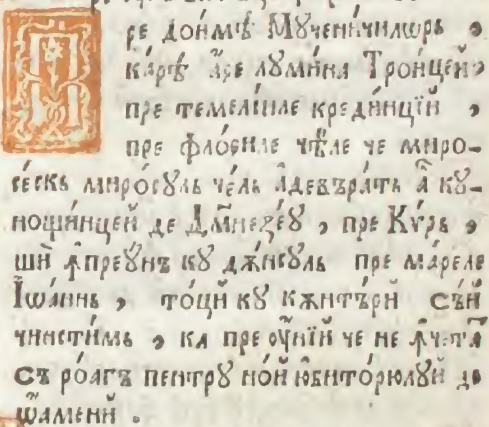 Пре доймѣ Мꙋче́ничилѡрь ,
ка́рѣ а҆́ре лꙋми́на Тро́ицей ,
пре темели́иле креди́нцїй ,
пре фло́риле чѣ́ле че миро-
се́скь миро́сꙋль че́ль а҆девъра́ть а҆ кꙋ-
ноши́нцей де Дм҃незе́ꙋ , пре Ки́рь ,
ши꙼ ꙟ҆преꙋ́нъ кꙋ дѫ́нсꙋль пре ма́реле
І҆ѡа́ннь , то́ци кꙋ кѫнтърй съ́й
чинсти́мь , ка пре оу҆́нїй че не ꙟ҆чета́
съ ро́агъ пентрꙋ но́й ю҆бито́рюлꙋй де
ѡ҆́аменй .